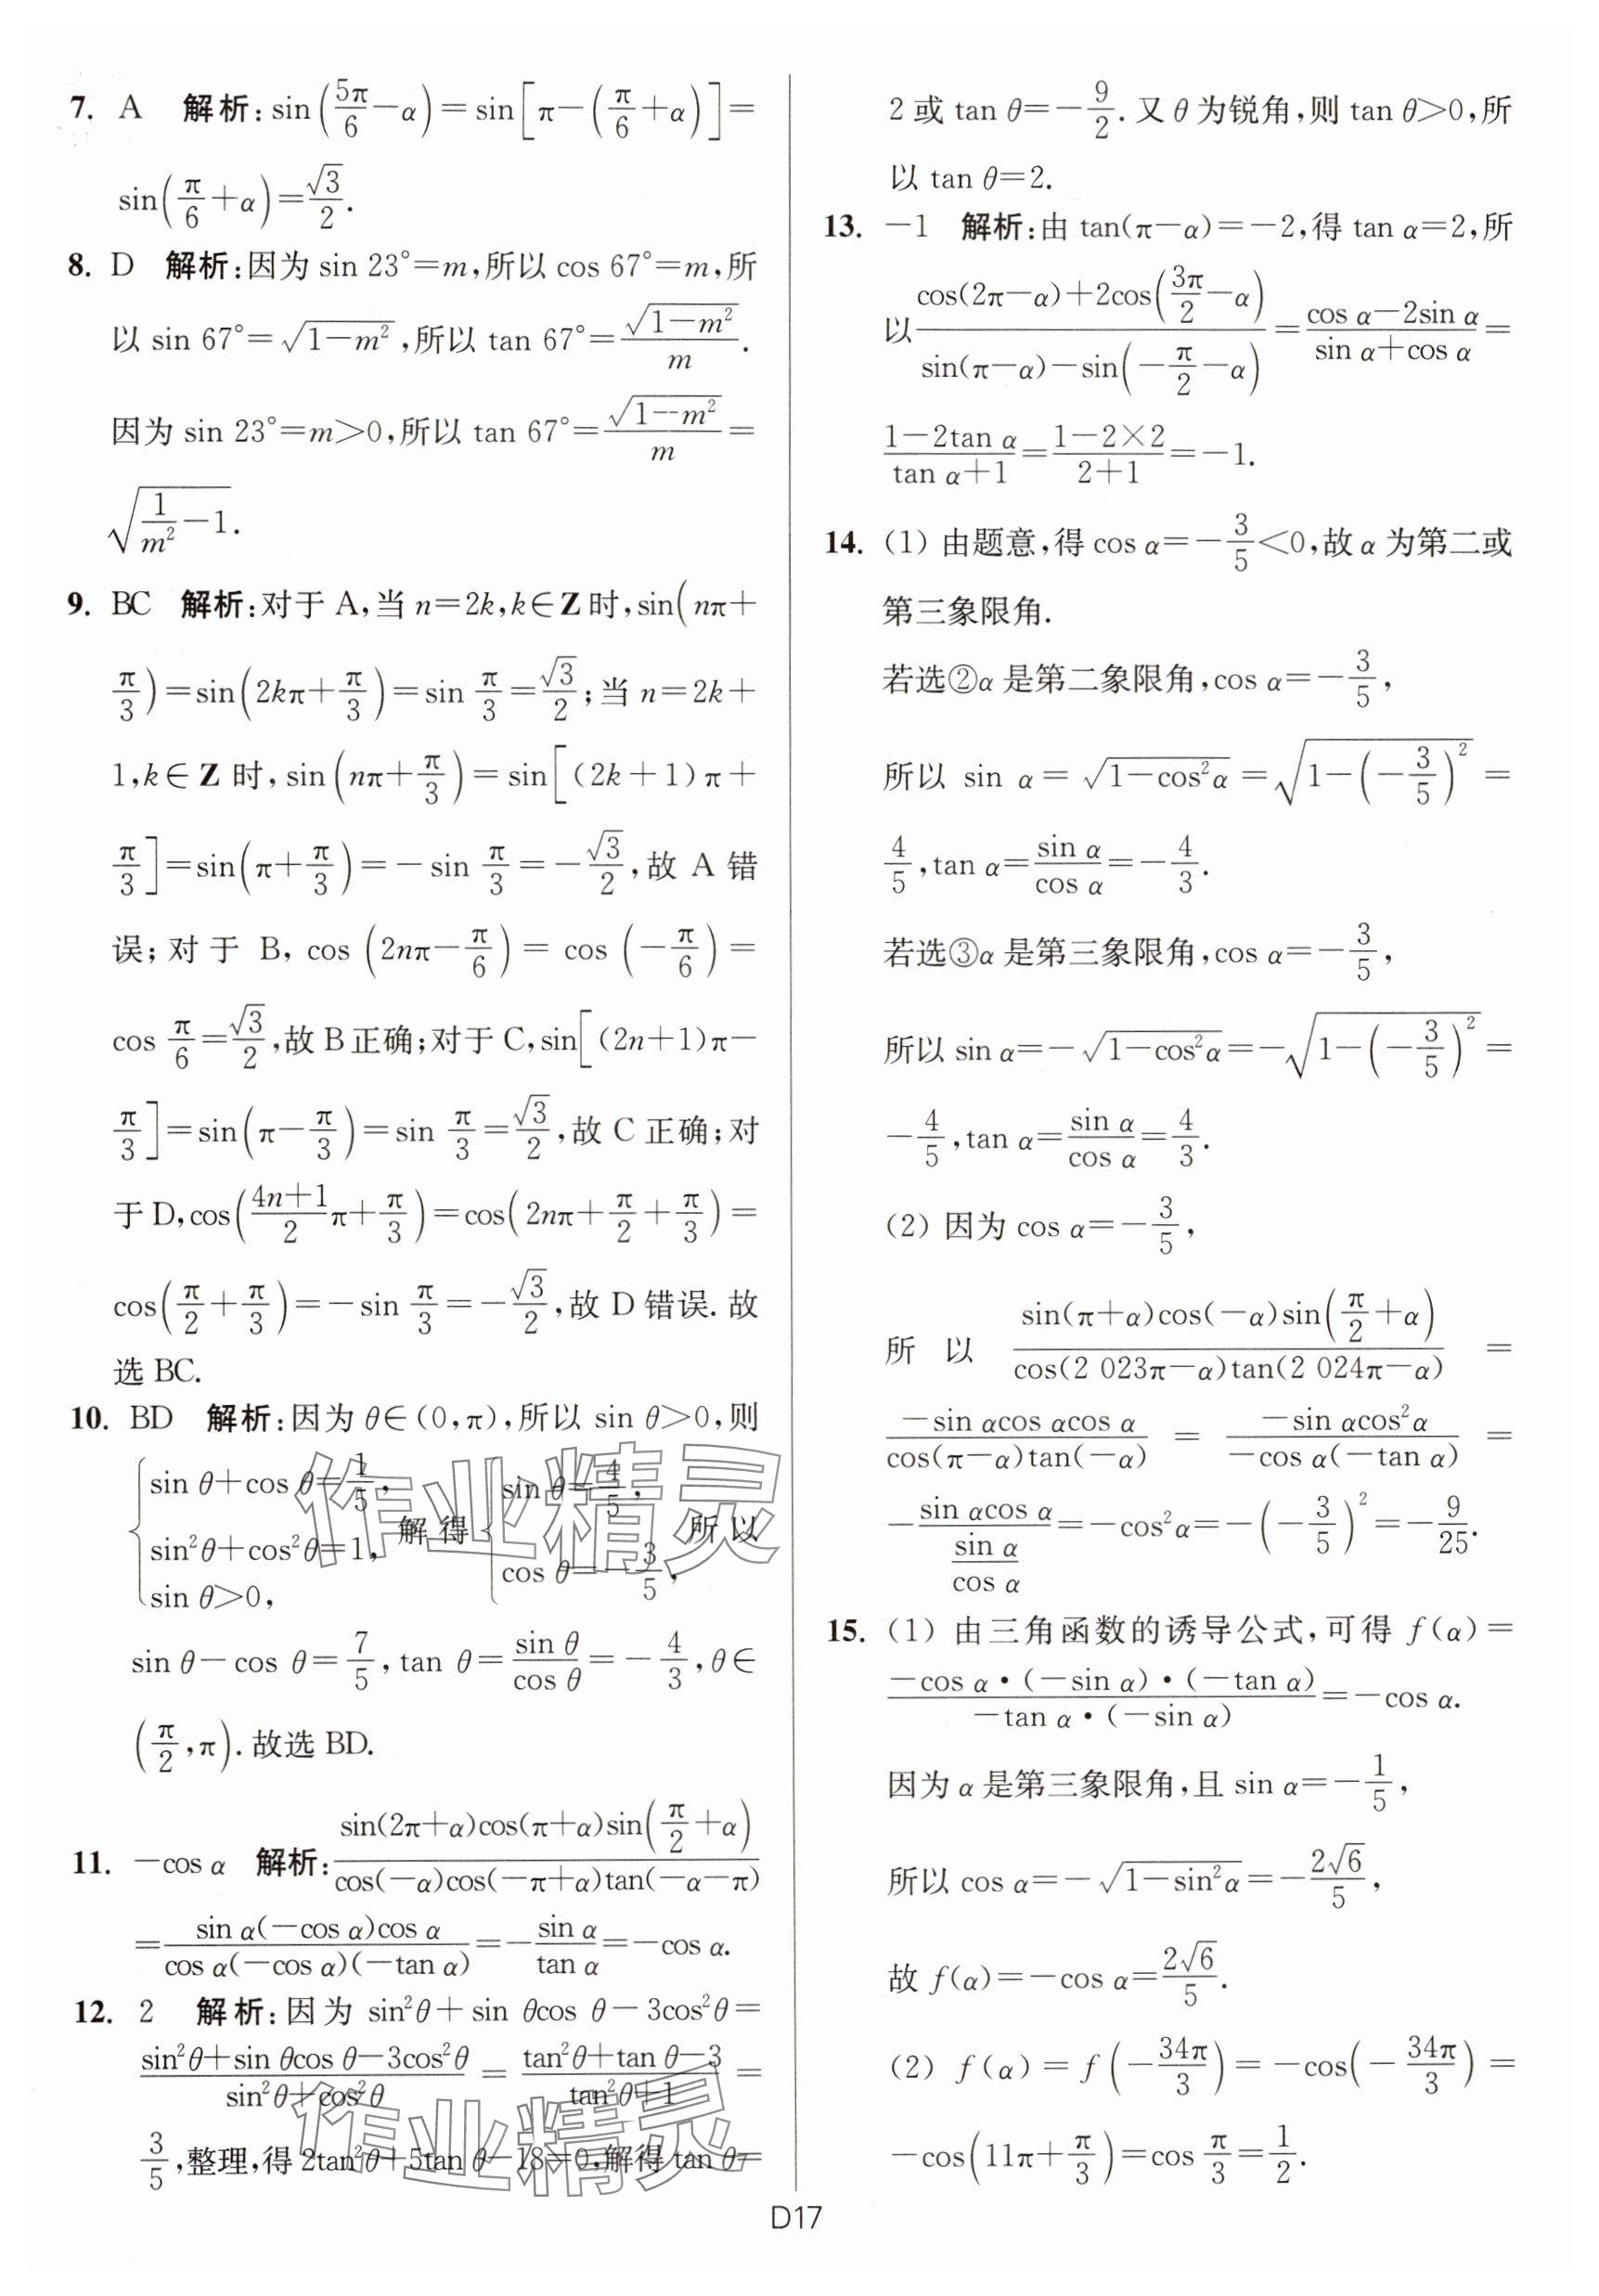 7. A 解析:sin(5π/6−α)=sin[π−(π/6+α)]=
sin(π/6+α)=√3/2.
8. D 解析:因为 sin 23°=m,所以 cos 67°=m,所
以 sin 67°=√(1−m²),所以 tan 67°=√(1−m²)/m.
因为 sin 23°=m>0,所以 tan 67°=√(1−m²)/m=
√(1/m²−1).
9. BC 解析:对于 A,当 n=2k,k∈Z 时,sin(nπ+
π/3)=sin(2kπ+π/3)=sin π/3=√3/2;当 n=2k+
1,k∈Z 时,sin(nπ+π/3)=sin[(2k+1)π+
π/3]=sin(π+π/3)=−sin π/3=−√3/2,故 A 错
误;对于 B,cos(2nπ−π/6)=cos(−π/6)=
cos π/6=√3/2,故 B 正确;对于 C,sin[(2n+1)π−
π/3]=sin(π−π/3)=sin π/3=√3/2,故 C 正确;对
于 D,cos((4n+1)/2π+π/3)=cos(2nπ+π/2+π/3)=
cos(π/2+π/3)=−sin π/3=−√3/2,故 D 错误.故
选 BC.
10. BD 解析:因为 θ∈(0,π),所以 sin θ>0,则
{sin θ+cos θ=1/5, sin²θ+cos²θ=1, sin θ>0, 解得{sin θ=4/5, cos θ=−3/5, 所以
sin θ−cos θ=7/5,tan θ=sin θ/cos θ=−4/3,θ∈
(π/2,π).故选 BD.
11. −cos α 解析:sin(2π+α)cos(π+α)sin(π/2+α)/cos(−α)cos(−π+α)tan(−α−π)
=sin α(−cos α)cos α/cos α(−cos α)(−tan α)=−sin α/tan α=−cos α.
12. 2 解析:因为 sin²θ+sin θcos θ−3cos²θ=
(sin²θ+sin θcos θ−3cos²θ)/(sin²θ+cos²θ)=(tan²θ+tan θ−3)/(tan²θ+1)=
3/5,整理,得 2tan²θ+5tan θ−18=0,解得 tan θ=
2 或 tan θ=−9/2.又 θ 为锐角,则 tan θ>0,所
以 tan θ=2.
13. −1 解析:由 tan(π−α)=−2,得 tan α=2,所
以(cos(2π−α)+2cos(3π/2−α))/(sin(π−α)−sin(−π/2−α))=(cos α−2sin α)/(sin α+cos α)=
(1−2tan α)/(tan α+1)=(1−2×2)/(2+1)=−1.
14. (1) 由题意,得 cos α=−3/5<0,故 α 为第二或
第三象限角.
若选②α 是第二象限角,cos α=−3/5,
所以 sin α=√(1−cos²α)=√(1−(−3/5)²)=
4/5,tan α=sin α/cos α=−4/3.
若选③α 是第三象限角,cos α=−3/5,
所以 sin α=−√(1−cos²α)=−√(1−(−3/5)²)=
−4/5,tan α=sin α/cos α=4/3.
(2) 因为 cos α=−3/5,
所以 sin(π+α)cos(−α)sin(π/2+α)/cos(2 023π−α)tan(2 024π−α)=
−sin αcos αcos α/cos(π−α)tan(−α)=−sin αcos²α/−cos α(−tan α)=
−sin αcos α/(sin α/cos α)=−cos²α=−(−3/5)²=−9/25.
15. (1) 由三角函数的诱导公式,可得 f(α)=
−cos α•(−sin α)•(−tan α)/−tan α•(−sin α)=−cos α.
因为 α 是第三象限角,且 sin α=−1/5,
所以 cos α=−√(1−sin²α)=−2√6/5,
故 f(α)=−cos α=2√6/5.
(2) f(α)=f(−34π/3)=−cos(−34π/3)=
−cos(11π+π/3)=cos π/3=1/2.
D17
作业精灵
作业精灵